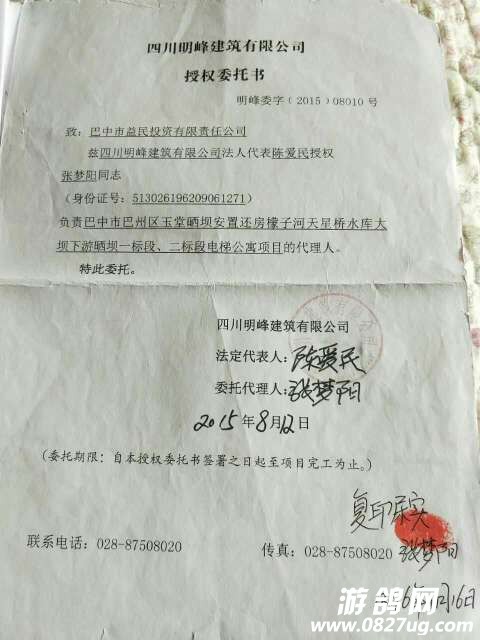 四川明峰建筑有限公司
授权委托书
明峰委字（2015）08010 号
致：巴中市益民投资有限责任公司
兹四川明峰建筑有限公司法人代表陈爱民授权
张梦阳同志
（身份证号：513026196209061271）
负责巴中市巴州区玉堂晒坝安置还房檬子河天星桥水库大
坝下游晒坝一标段、二标段电梯公寓项目的代理人。
特此委托。
四川明峰建筑有限公司
法定代表人：陈爱民
委托代理人：张梦阳
2015 年 8 月 12 日
（委托期限：自本授权委托书签署之日起至项目完工为止。）
复印属实
联系电话：028-87508020 传真：028-87508020 张梦阳
月16日
游鸽网
www.0827ug.com